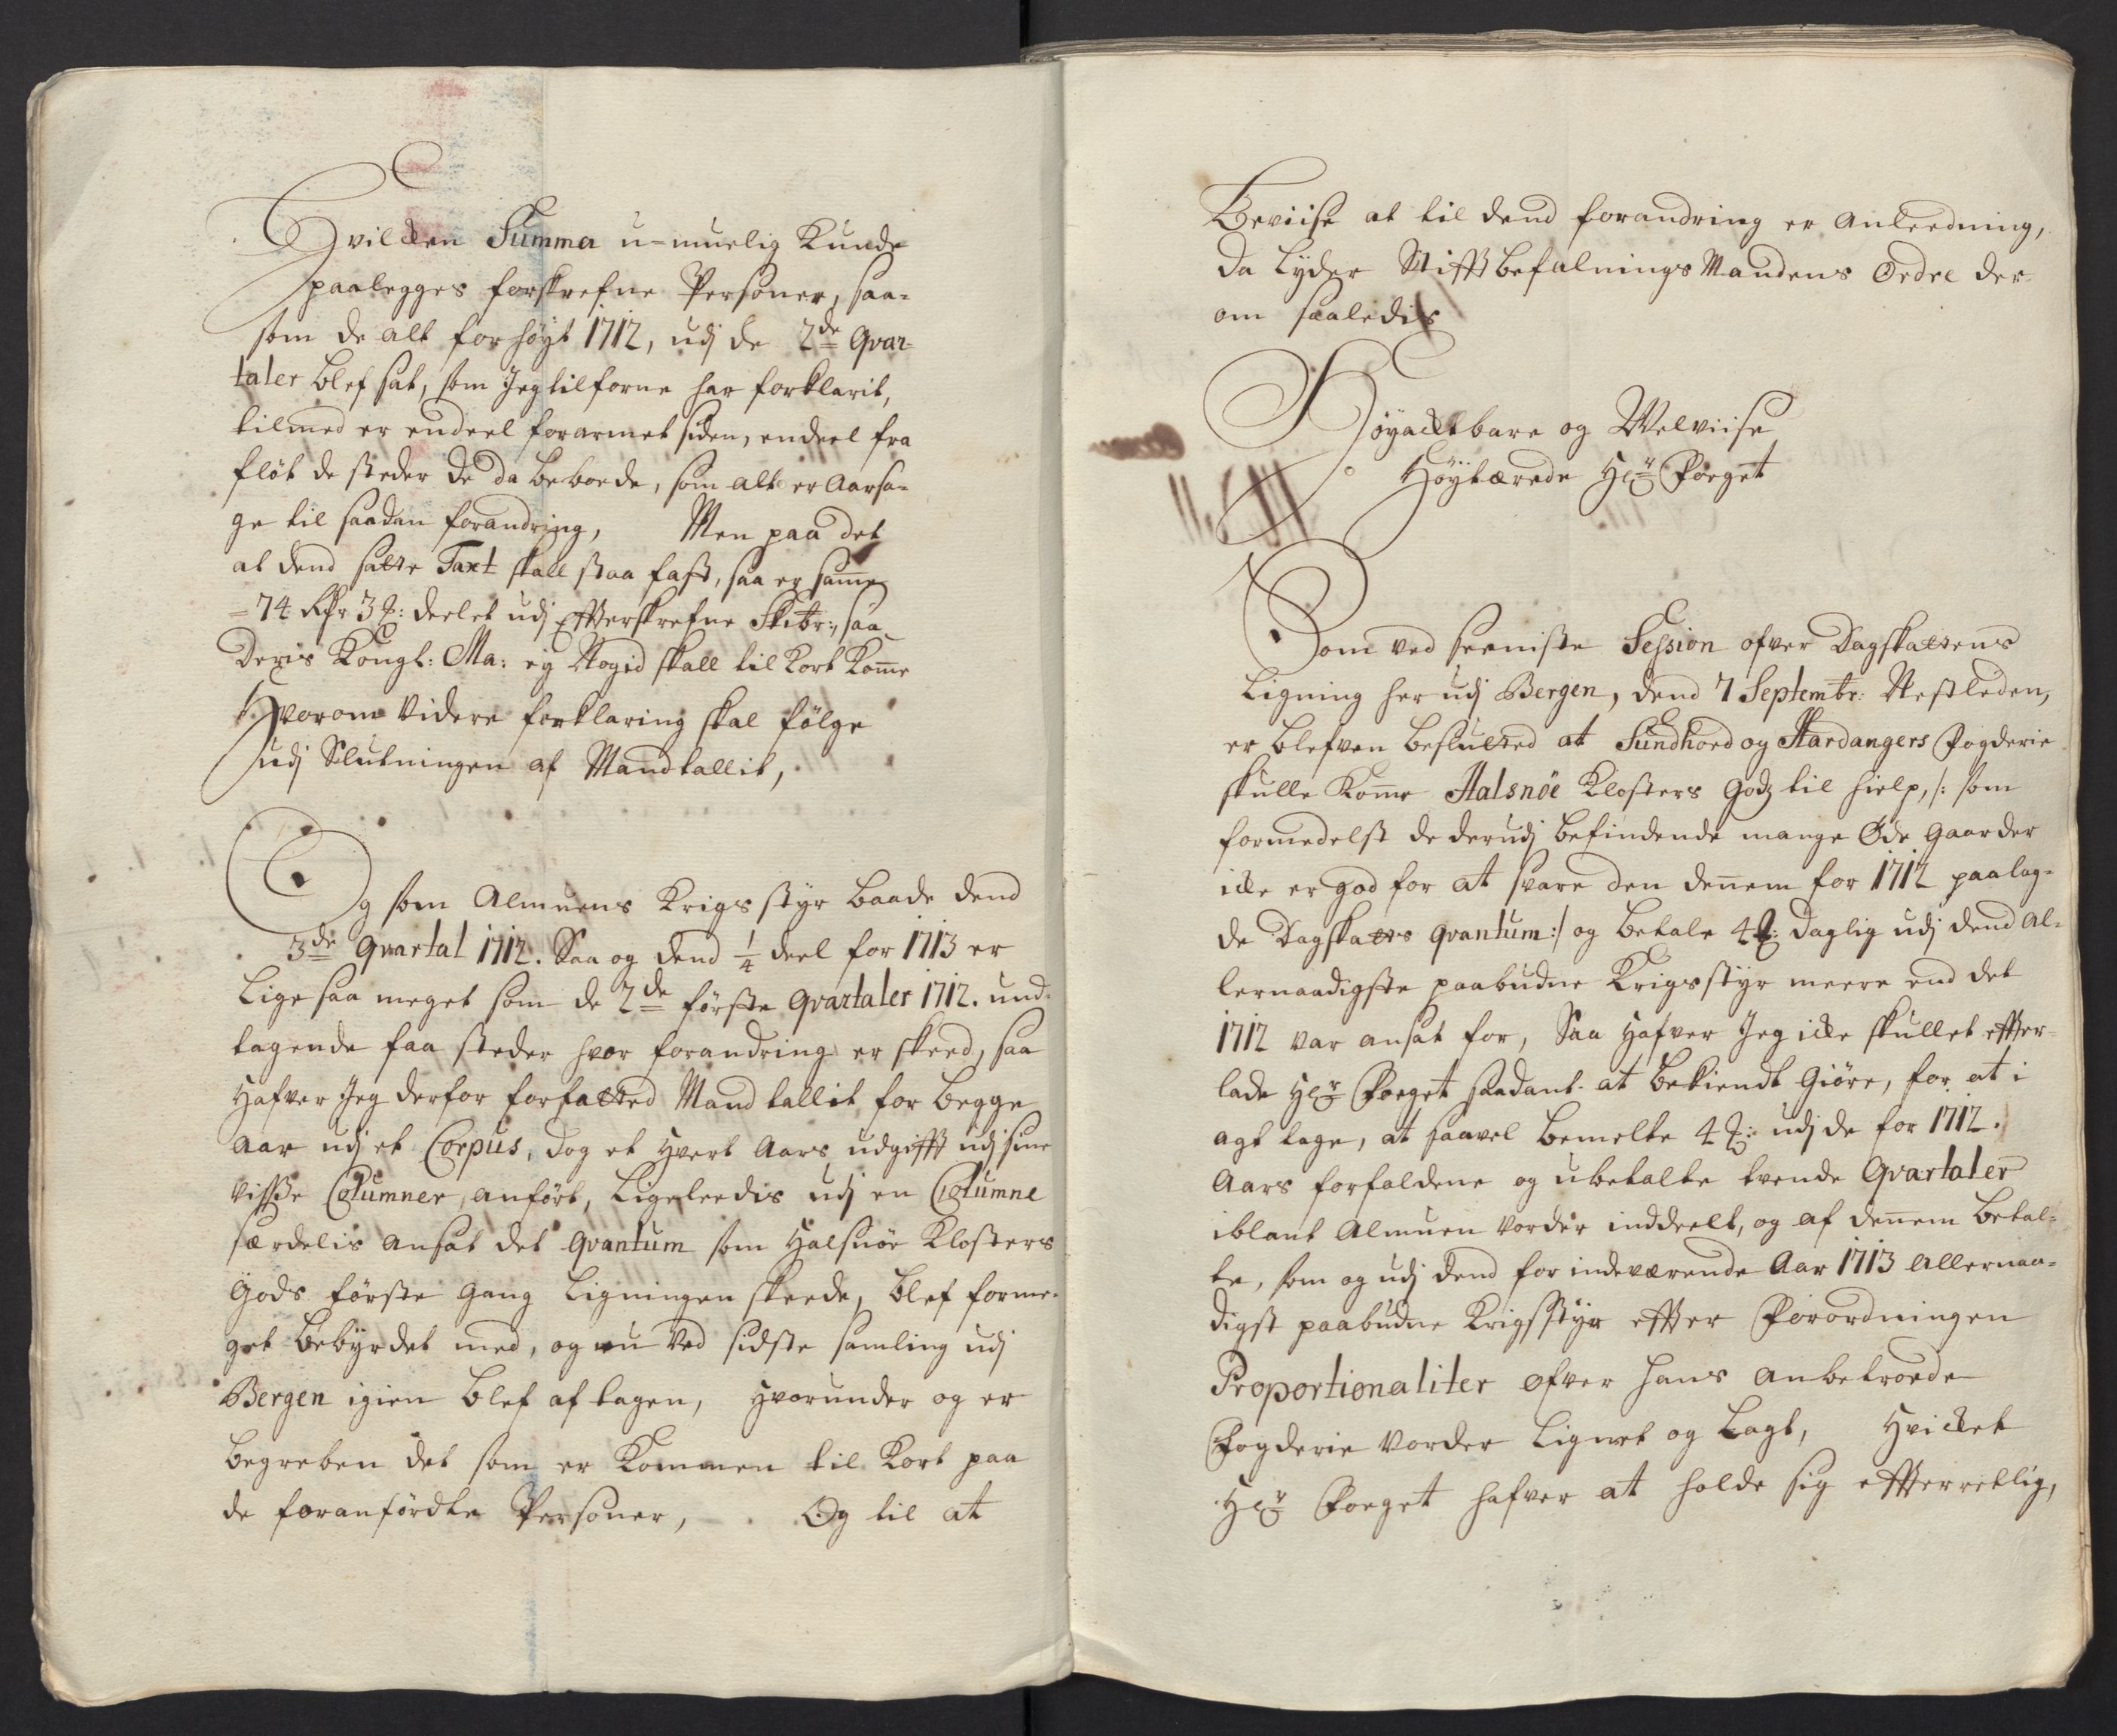 Hvilcken Summa u-muelig kunde
paalegges forskrefne Personer, saa-
som de alt for høyt 1712, udj de 2de Qvar-
taler blef sat, som Jeg tilforne har forklarit,
tilmed er endeel forarmet siden, endeel fra
fløt de steder de da beboede, som alt er aarsa-
ge til saadan forandring, Men paa det
at dend satte Taxt skall staa fast, saa er samme
= 74 Rdr 3 s: deelet udj Effterskrefne Skibr:, saa
Deris Kongl: Ma: ej Nogid skall til kort komme
Hvorom videre forklaring skal følge
udj Slutningen af Mandtallit,
Og som Almuens Krigsstyr baade dend
3de Qvartal 1712. Saa og dend 1/4 deel for 1713 er
Lige saa meget som de 2de første Qvartaler 1712. und-
tagende faa steder hvor forandring er skeed, saa
Hafver Jeg derfor forfatted Mandtallit for begge
Aar udj et Corpus, dog et hvert Aars udgifft udj sine
visse Columner, anført, Ligeleedis udj en Columne
særdelis ansat det Qvantum som Halsnøe Klosters
Gods første gang Ligningen skeede, blef forme-
get bebyrdet med, og nu ved sidste samling udj
Bergen igien blef aftagen, hvorunder og er
begreben det som er kommen til kort paa
de foranførdte Personer, Og til at
Beviise at til dend forandring er anleedning,
da lyder StifftsbefalningsMandens Ordre der-
om saaledis
Høyacktbare og Velviise
Høytærede Hr Foeget
Som ved seeniste Session ofver Dagskattens
Ligning her udj Bergen, dend 7 Septembr: Nestleden,
er blefven beslutted at Sundhord og Hardangers Fogderie
skulle komme Halsnöe Klosters Godz til hielp, /: som
formedelst de derudj befindende mange Øde gaarder
icke er god for at svare den dennem for 1712 paalag-
de Dagskatts qvantum :/ og betale 4 s: daglig udj dend al-
lernaadigste paabudne Krigsstyr meere end det
1712 var ansat for, Saa Hafver Jeg icke skullet effter-
lade Hr Foeget saadant at bekiendt giøre, for at i
agt tage, at saavel bemelte 4 s: udj de for 1712.
Aars forfaldene og ubetalte tvende Qvartaler
iblant Almuen vorder inddeelt, og af dennem betal-
te, som og udj dend for indeværende Aar 1713 allernaa-
digst paabudne Krigsstyr effter Forordningen
Proportionaliter ofver hans anbetroede
Fogderie vorder Lignet og Lagt, Hvilcket
Hr Foeget hafver at holde sig effterrettlig,